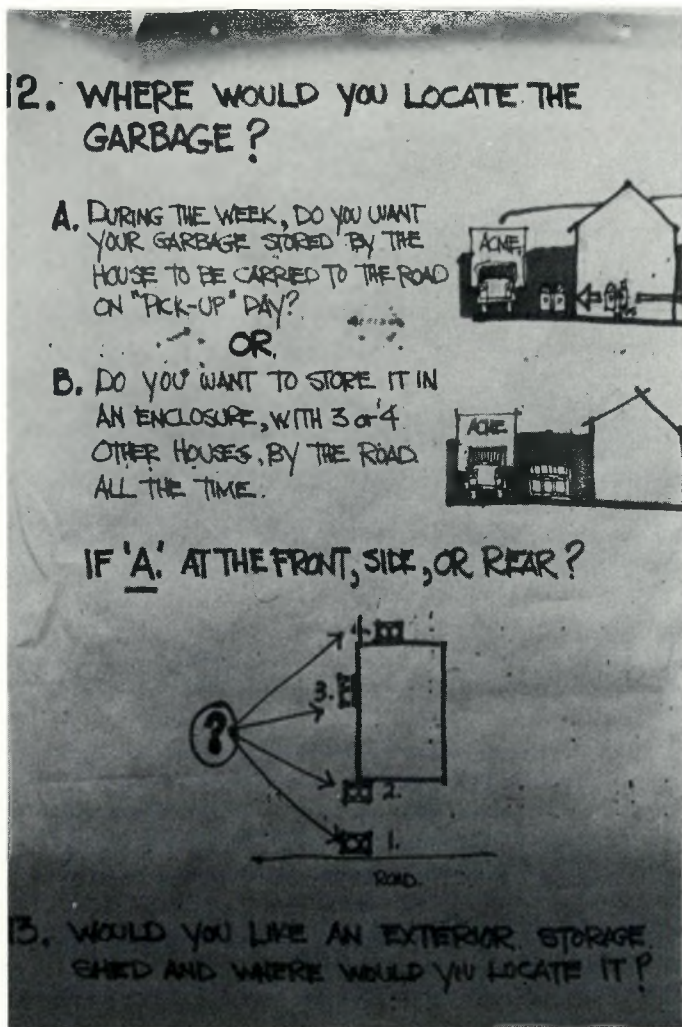 12. WHERE WOULD YOU LOCATE THE
GARBAGE?
A. DURING THE WEEK, DO YOU WANT
YOUR GARBAGE STORED BY THE
HOUSE TO BE CARRIED TO THE ROAD
ON "PICK-UP" DAY?
OR
B. DO YOU WANT TO STORE IT IN
AN ENCLOSURE, WITH 3 or 4
OTHER HOUSES, BY THE ROAD
ALL THE TIME.
ACME
ACME
IF 'A'. AT THE FRONT, SIDE, OR REAR?
3.
?
2.
1.
ROAD.
13. WOULD YOU LIKE AN EXTERIOR STORAGE
SHED AND WHERE WOULD YOU LOCATE IT?